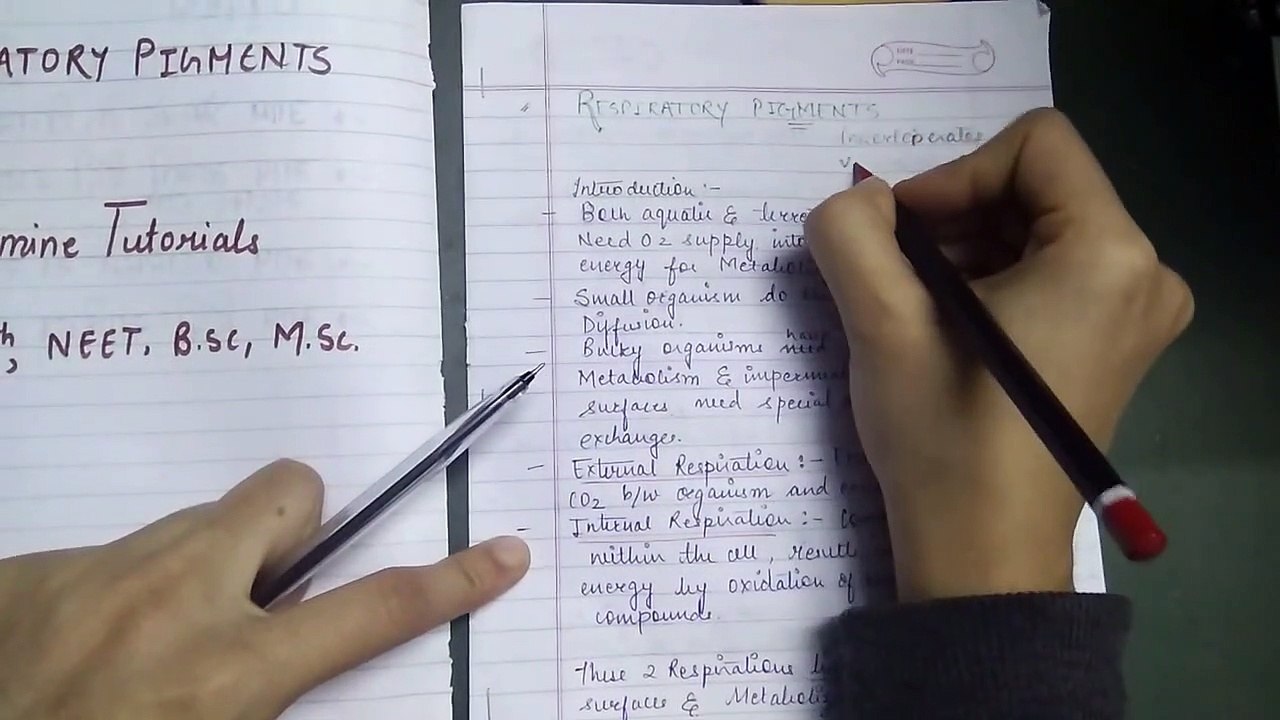 ATORY PIGMENTS
mine Tutorials
h, NEET, B.SC, M.Sc.
DATE
PAGE
RESPIRATORY PIGMENTS
Invertebrates
V
Introduction :-
Both aquatic & terre
Need O2 supply, into
energy for Metabol
Small organism do
Diffusion.
have
Bulky organisms need
Metabolism & imperm
surfaces need special
exchanges.
External Respiration :-
CO2 b/w organism and
Internal Respiration :-
within the cell, result
energy by oxidation of
compounds.
These 2 Respirations
surfaces & Metabolis